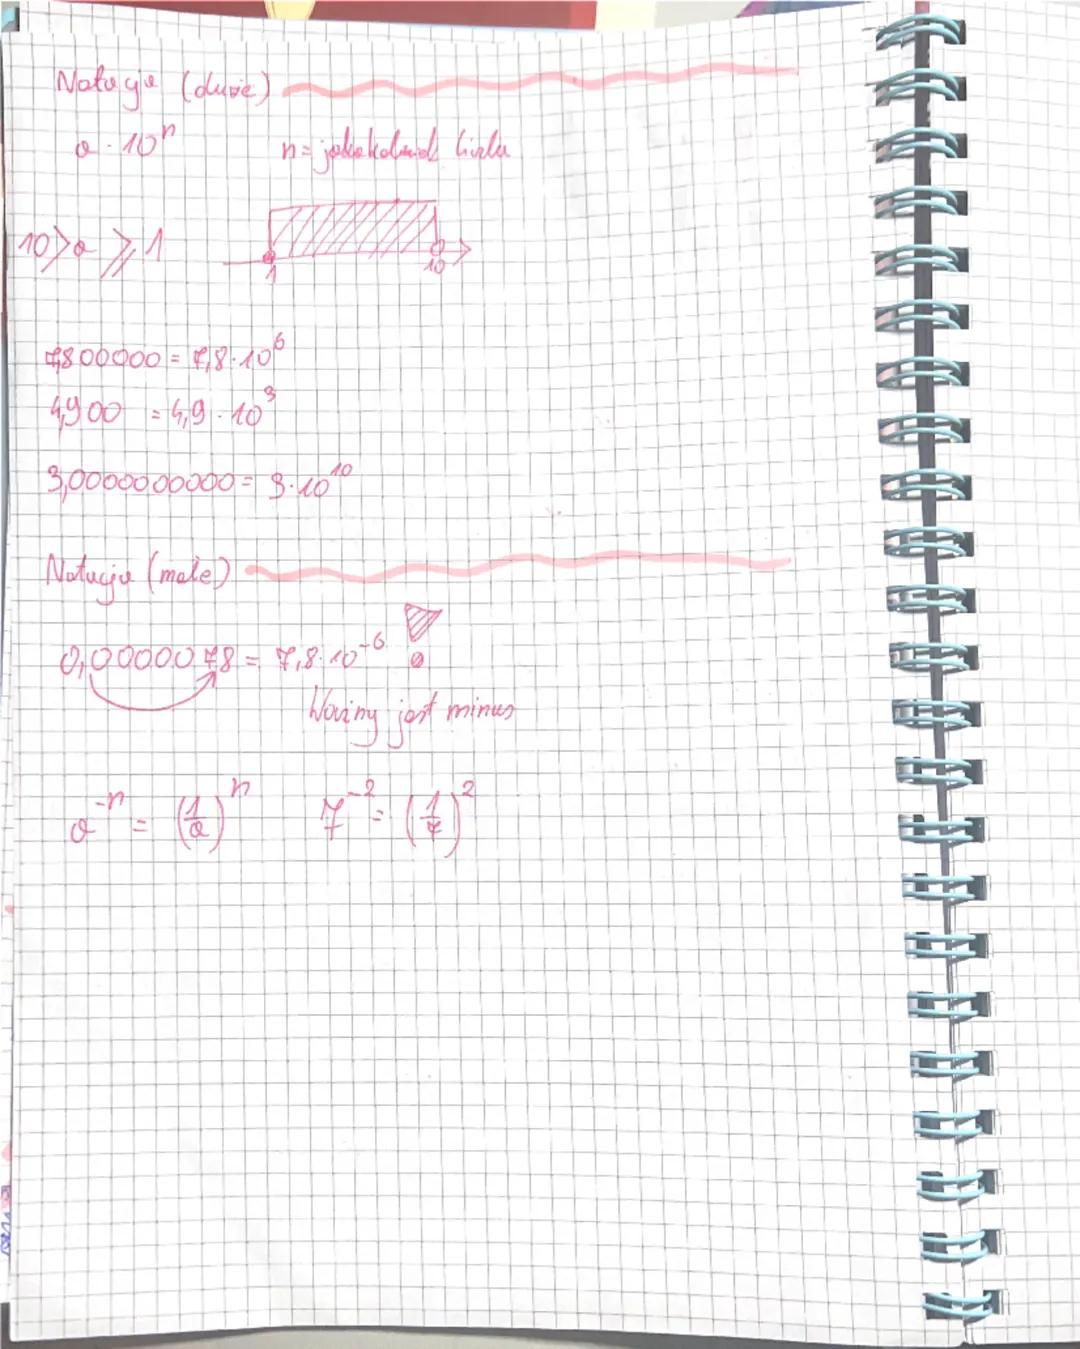 Notacja (duże)
a · 10ⁿ n = jakakolwiek liczba
10 > a ⩾ 1
1 10
7,800000 = 7,8 · 10⁶
4,900 = 4,9 · 10³
3,0000000000 = 3 · 10¹⁰
Notacja (małe)
0,00000 78 = 7,8 · 10⁻⁶ !
Ważny jest minus
a⁻ⁿ = (1/a)ⁿ 7⁻² = (1/7)²